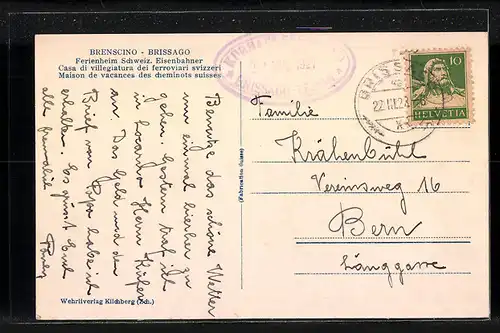 BRENSCINO - BRISSAGO
Ferienheim Schweiz. Eisenbahner
Casa di villegiatura dei ferrovieri svizzeri
Maison de vacances des cheminots suisses
Benutze das schöne Wetter
um einmal hierher zu
gehen. Gestern traf ich
in Locarno Herr
an. Das Geld und den
Brief von Papa habe ich
erhalten. Es grüsst Euch
alle freundlich
Wehrliverlag Kilchberg (Zch.)
(Fabrication Suisse)
BRISSAGO
22.III.23
10
HELVETIA
Familie
Krähenbühl
Vereinsweg 16
Bern
Länggasse